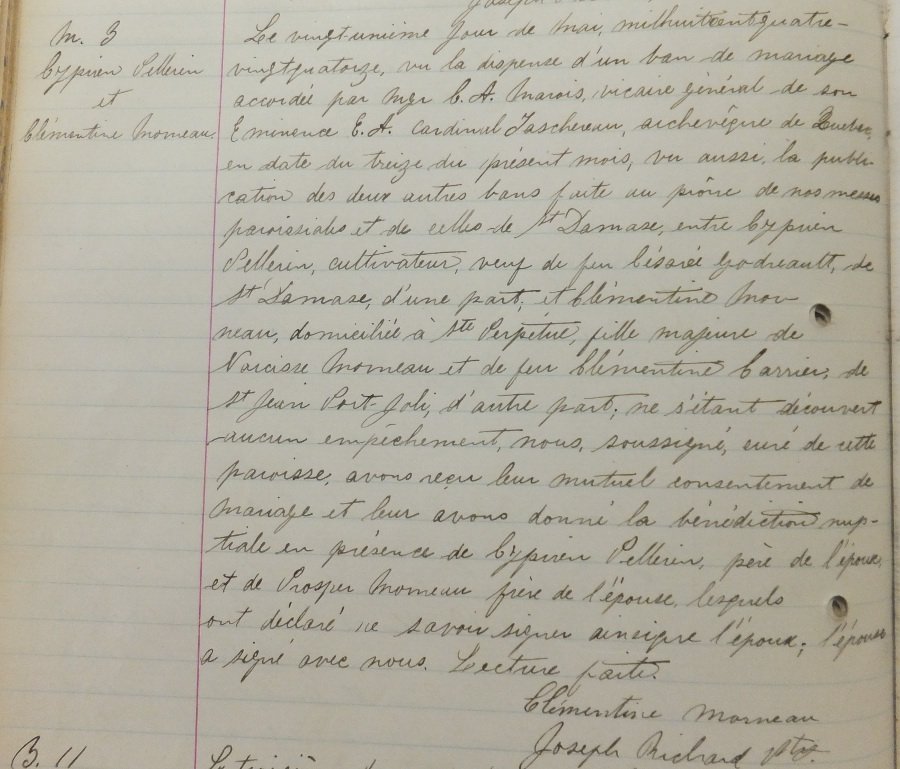 M. 3
Cyprien Pellerin
et
Clémentine Morneau.
Le vingt-unième jour de Mai, mil huit cent quatre-
vingt quatorze, vu la dispense d'un ban de mariage
accordée par Mgr C. A. Marois, vicaire général de son
Eminence E. A. Cardinal Taschereau, archevêque de Quebec,
en date du treize du présent mois, vu aussi, la publi-
cation des deux autres bans faite au prône de nos messes
paroissiales et de celles de St Damase, entre Cyprien
Pellerin, cultivateur, veuf de feu Césarée Godreault, de
St Damase, d'une part, et Clémentine Mor-
neau, domiciliée à Ste Perpétue, fille majeure de
Narcisse Morneau et de feu Clémentine Carrier, de
St Jean Port-Joli, d'autre part; ne s'étant découvert
aucun empêchement, nous, soussigné, curé de cette
paroisse, avons reçu leur mutuel consentement de
mariage et leur avons donné la bénédiction nup-
tiale en présence de Cyprien Pellerin, père de l'époux,
et de Prosper Morneau frère de l'épouse, lesquels
ont déclaré ne savoir signer ainsi que l'époux; l'épouse
a signé avec nous. Lecture faite.
Clémentine Morneau
Joseph Richard Ptre.
B. 11